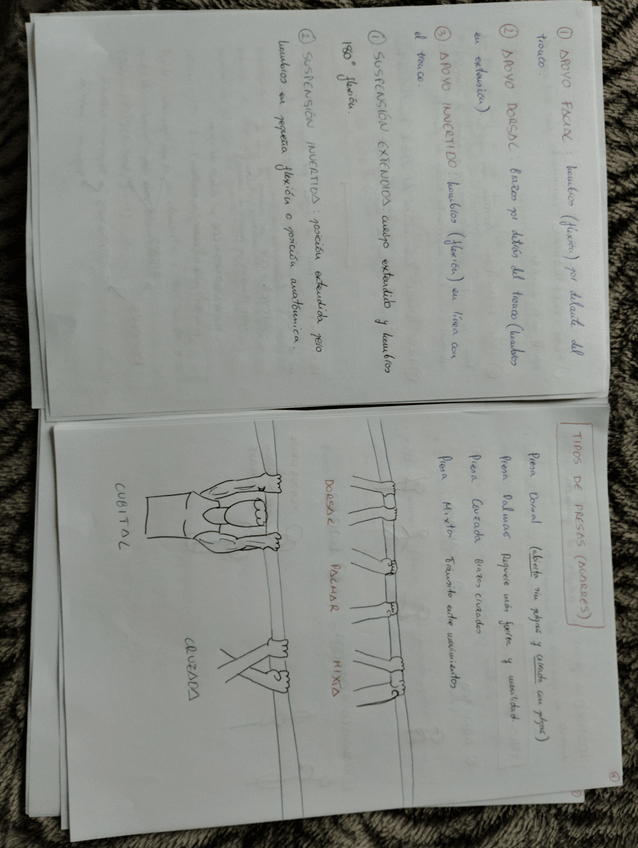 ① APOYO FACIAL: hombros (flexión) por delante del
tronco.
② APOYO DORSAL Brazos por detrás del tronco (hombros
en extensión)
③ APOYO INVERTIDO: hombros (flexión) en línea con
el tronco.
① SUSPENSIÓN EXTENDIDA cuerpo extendido y hombros
180° flexión.
② SUSPENSIÓN INVERTIDA: posición extendida pero
hombros en pequeña flexión o posición anatómica.
TIPOS DE PRESAS (AGARRES)
Presa Dorsal (abierta sin pulgar y cerrada con pulgar)
Presa Palmar Requiere más fuerza y movilidad
Presa Cruzada Brazos cruzados
Presa Mixta Tránsito entre movimientos
DORSAL PALMAR MIXTA
CUBITAL CRUZADA